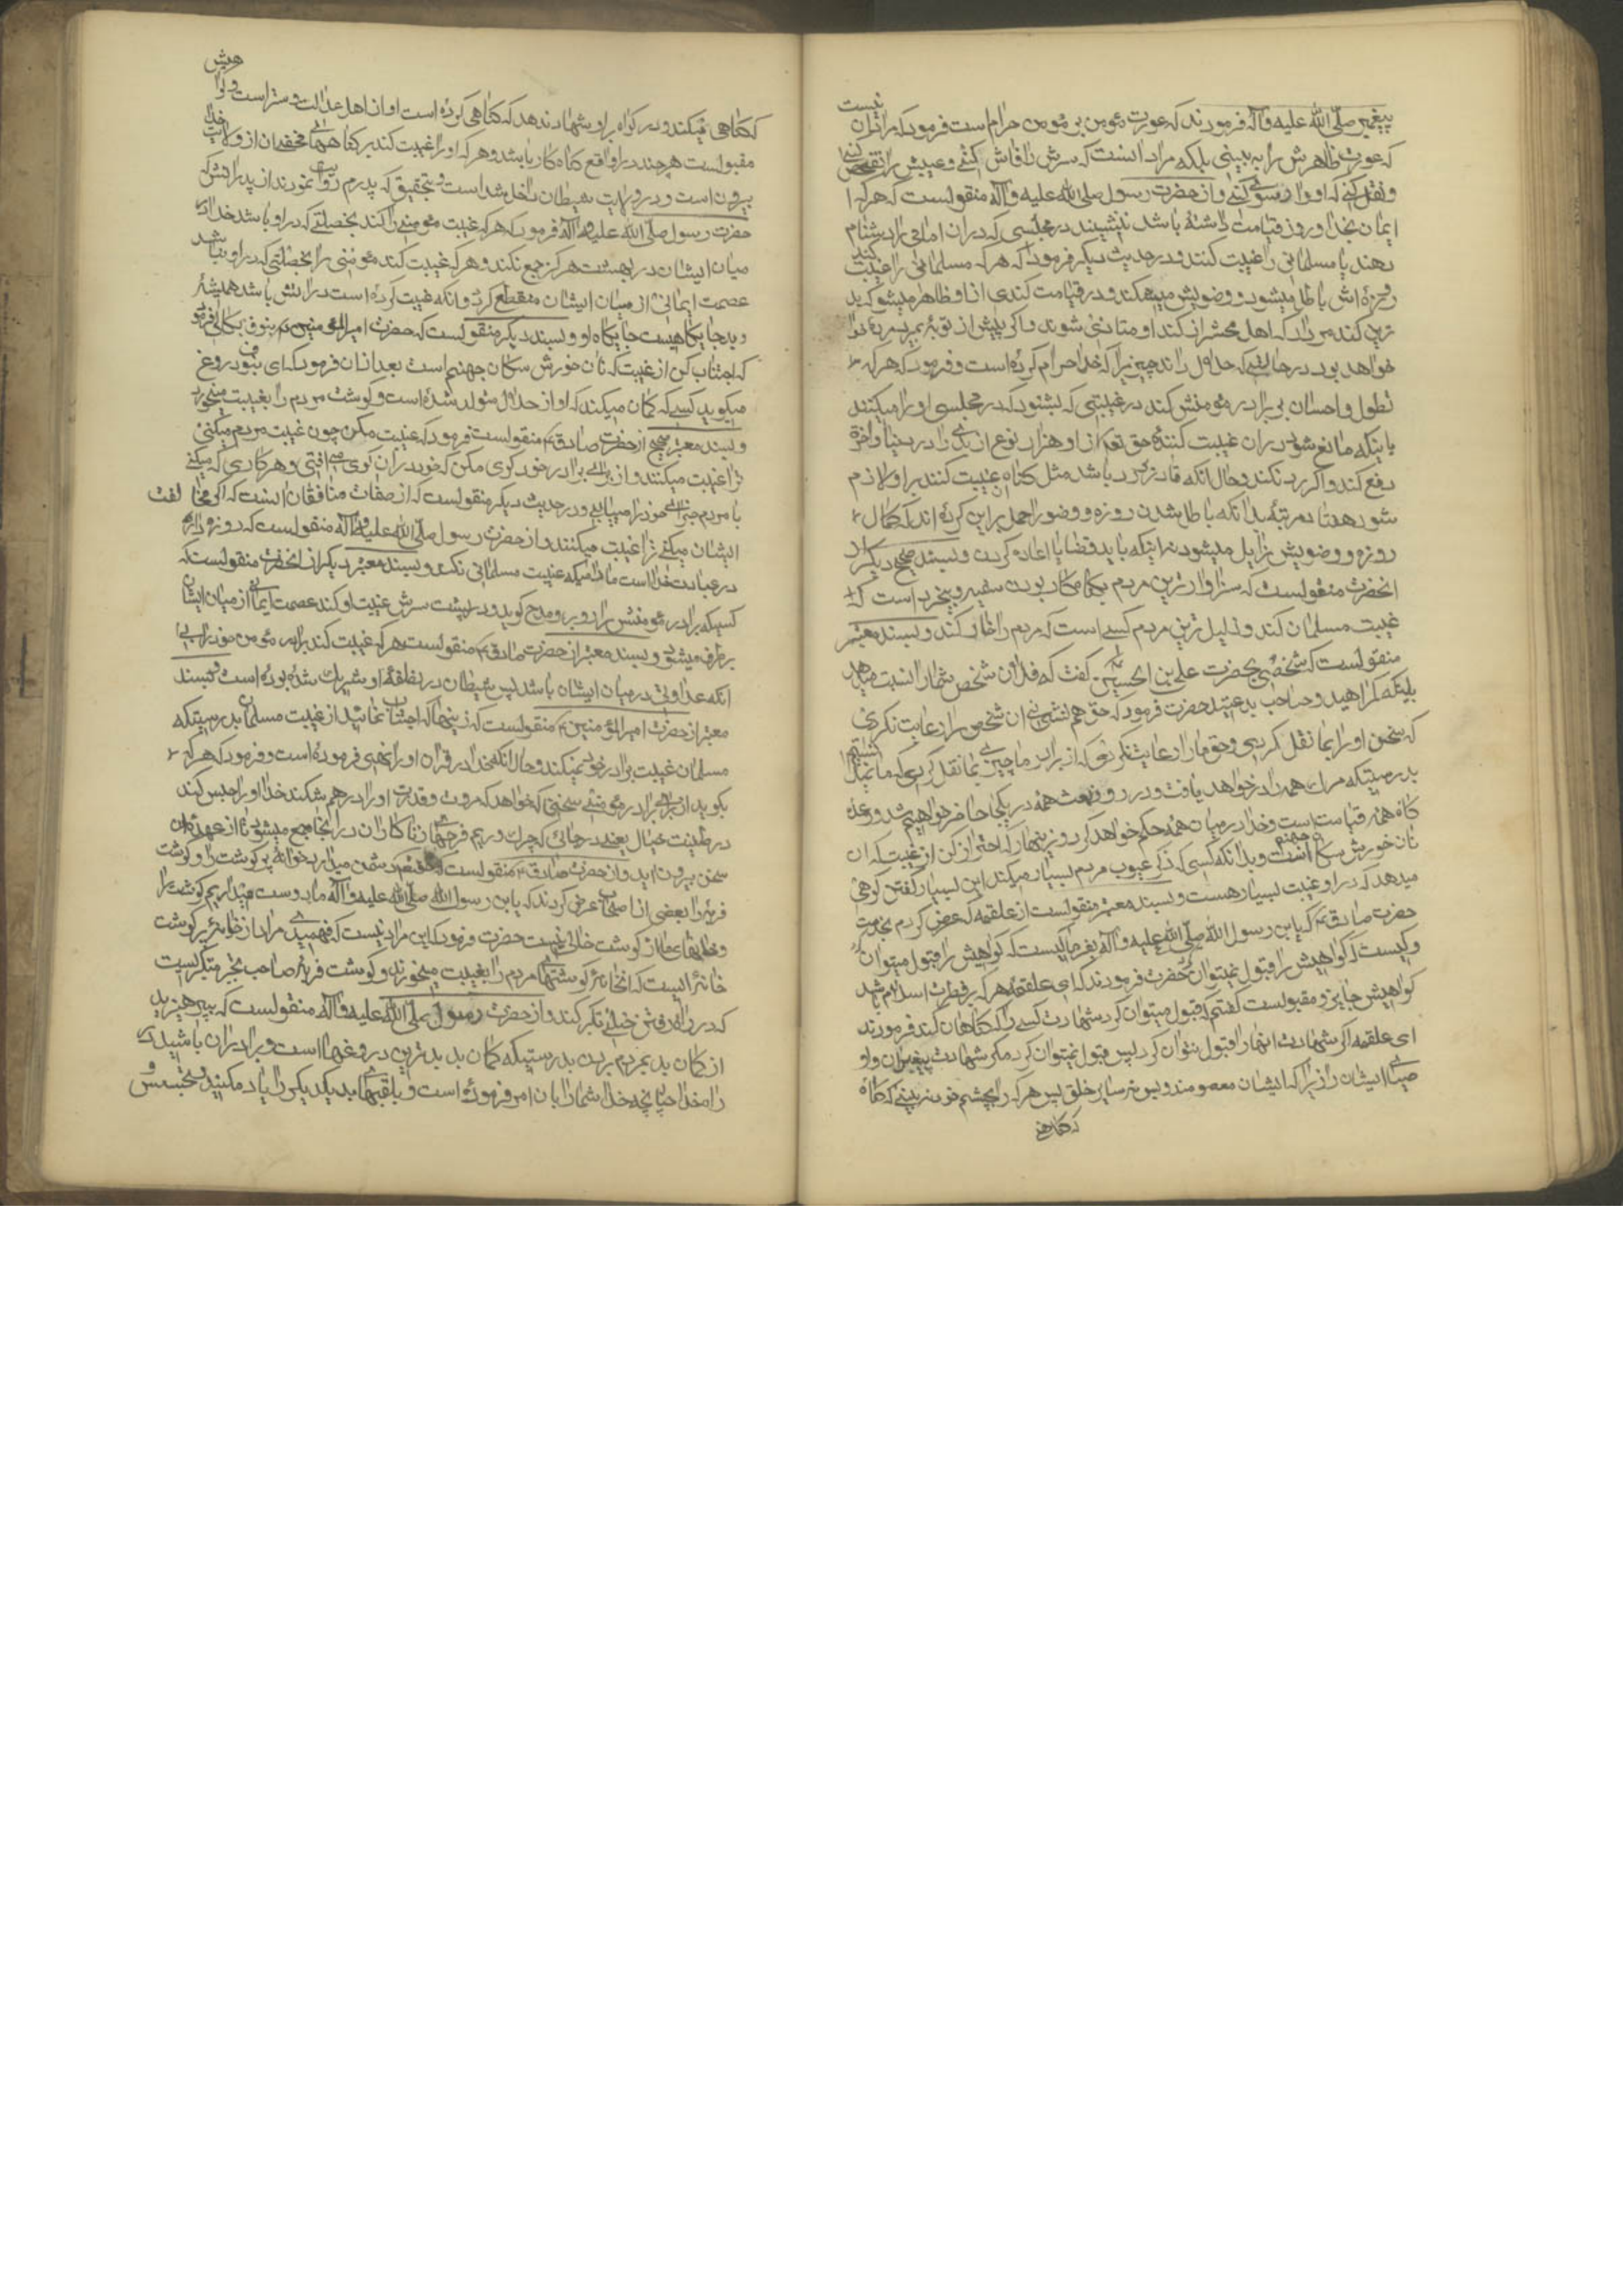 پیغمبر صلّی الله علیه وآله فرمودند که عورت مؤمن بر مؤمن حرام است فرمود که مراد ان نیست
که عورت ظاهرش را به بینی بلکه مراد انست که سرش را فاش کنی و عیبش را تفحص کنی
و نقل کنی که او را رسوا کنی و از حضرت رسول صلی الله علیه وآله منقولست که هر که
ایمان بخدا و روز قیامت داشته باشد ننشیند در مجلسی که دران امامی را دشنام
دهند یا مسلمانی را غیبت کنند و در حدیث دیگر فرمود که هر که مسلمانی را غیبت کند
روزه اش باطل میشود و وضویش میشکند و در قیامت کندی از او ظاهر میشود که بد
تر از کند مردار که اهل محشر از کند او متاذی شوند و اگر پیش از توبه بمیرد
خواهد بود در حالتی که حلال داند چیزی را که خدا حرام کرده است و فرمود که هر که
تطول و احسان بر برادر مؤمنش کند در غیبتی که بشنود که در مجلسی او را میکنند
باینکه مانع شود دران غیبت کننده حق تعالی از او هزار نوع از بدی را در دنیا و اخرة
دفع کند و اگر رد نکند و حال انکه قادر بر رد باشد مثل گناه ان غیبت کننده بر او لازم
شود هفتاد مرتبه بدانکه باطل شدن روزه و وضو را حمل بر این کرده اند که کمال
روزه و وضویش زایل میشود نه اینکه باید قضا یا اعاده کردن و بسند صحیح دیگر از
انحضرت منقولست که سزاوارترین مردم بگناهکار بودن سفیه و بیخرد است که
غیبت مسلمان کند و ذلیل ترین مردم کسی است که مردم را خار کند و بسند معتبر
منقولست که شخصی بحضرت علی بن الحسین گفت که فلان شخص شما را نسبت میدهد
باینکه گمراهید و صاحب بدعتید حضرت فرمود که حق هم نشینی ان شخص را رعایت نکردی
که سخن او را بما نقل کردی و حق مرا رعایت نکردی که از برادر ما چیزی بما نقل کردی که ما نمیدانستیم
بدرستیکه مرک همه را در خواهد یافت و در روز بعث همه در یکجا حاضر خواهیم شد و وعده
گاه همه قیامت است و خدا در میان همه حکم خواهد کرد و زینهار که احتراز کن از غیبت که ان
نان خورش سگان جهنم است و بدانکه کسی که ذکر عیوب مردم بسیار میکند این بسیار گفتن گواهی
میدهد که در او عیب بسیار هست و بسند معتبر منقولست از علقمه که عرض کردم بخدمت
حضرت صادق ع که یا بن رسول الله صلّی الله علیه وآله بفرما کیست که گواهیش را قبول میتوان کرد
و کیست که گواهیش را قبول نمیتوان کرد حضرت فرمودند که ای علقمه هر که بر فطرت اسلام باشد
گواهیش جایز و مقبولست گفتم که قبول میتوان کرد شهادت کسی را که گناهان کند فرمودند
ای علقمه اگر شهادت اینها را قبول نتوان کرد پس قبول نمیتوان کرد مگر شهادت پیغمبران و او
صیای ایشان را زیرا که ایشان معصومند و بس نه سایر خلق پس هر که را بچشم خود نه بینی که گناه
که گناهی
که گناهی میکند و دو گواه بر او شهادت ندهد که گناهی کرده است او از اهل عدالت و ستر است و گوا هیش
مقبولست هر چند در واقع گناه کار باشد و هر که او را غیبت کند بر گناههای مخفی ان از ولایت خدا
بیرون است و در ولایت شیطان داخل شده است و بتحقیق که پدرم روایت نمودند از پدرانش که
حضرت رسول صلّی الله علیه وآله فرمود که هر که غیبت مؤمنی را کند بخصلتی که در او باشد خدا
میان ایشان در بهشت هرگز جمع نکند و هر که غیبت کند مؤمنی را بخصلتی که در او نباشد
عصمت ایمانی از میان ایشان منقطع گردد و انکه غیبت کرده است در اتش باشد همیشه
و بد جایگاهیست جایگاه او و بسند دیگر منقولست که حضرت امیر المؤمنین ع بنوف بکالی فرمود
که اجتناب کن از غیبت که نان خورش سگان جهنم است بعد ازان فرمود که ای نوف دروغ
میگوید کسی که گمان میکند که او از حلال متولد شده است و گوشت مردم را بغیبت میخورد
و بسند معتبر صحیح از حضرت صادق ع منقولست فرمود که غیبت مکن چون غیبت مردم میکنی
ترا غیبت میکنند و از برای برادر خود گوی مکن که خود دران گوی می افتی و هر کاری که میکنی
با مردم جزای خود را مییابی و در حدیث دیگر منقولست که از صفات منافقان انست که اگر مخالفت
ایشان میکنی ترا غیبت میکنند و از حضرت رسول صلّی الله علیه وآله منقولست که روزه دار
در عبادت خدا است مادامیکه غیبت مسلمانی نکند و بسند معتبر دیگر از انحضرت منقولست که
کسیکه برادر مؤمنش را رو برو مدح گوید و در پشت سرش غیبت او کند عصمت ایمانی از میان ایشان
برطرف میشود و بسند معتبر از حضرت صادق ع منقولست هر که غیبت کند برادر مؤمن خود را بی
انکه عداوتی در میان ایشان باشد پس شیطان در نطفه او شریک شده بوده است و بسند
معتبر از حضرت امیر المؤمنین ع منقولست که زینهار که اجتناب نمائید از غیبت مسلمان بدرستیکه
مسلمان غیبت برادر خود نمیکند و حال انکه خدا در قران او را نهی فرموده است و فرمود که هر که
بگوید از برای برادر مؤمنی سخنی که خواهد که مروت و قدر او را در هم شکند خدا او را حبس کند
در طینت خبال یعنی در جائی که چرک و ریم فرجهای زناکاران در انجا جمع میشود تا از عهده ان
سخن بیرون اید و از حضرت صادق ع منقولست که دشمن میدارد خدا خانه پر گوشت را و گوشت
فربه را بعضی از اصحاب عرض کردند که یابن رسول الله صلّی الله علیه وآله ما دوست میداریم گوشت را
و خانهای ما از گوشت خالی نیست حضرت فرمود که این مراد نیست که فهمیدی مراد از خانه پر گوشت
خانه ایست که انجا گوشتهای مردم را بغیبت میخورند و گوشت فربه صاحب تجبر متکبریست
که در راه رفتن خیلی تکبر کند و از حضرت رسول صلّی الله علیه وآله منقولست که بپرهیزید
از گمان بد بمردم بردن بدرستیکه گمان بد بدترین دروغهاست و برادران باشید در
راه خدا چنانچه خدا شما را بان امر فرموده است و بلقبهای بد یکدیگر را یاد مکنید و تجسس و